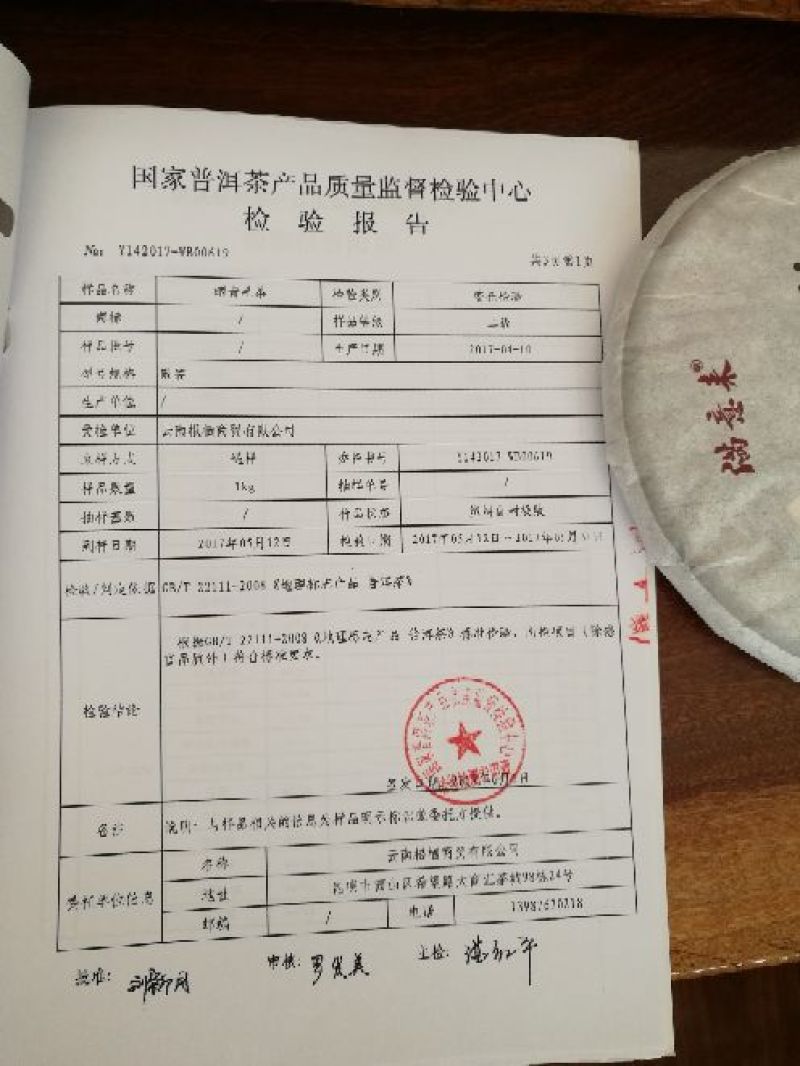 国家普洱茶产品质量监督检验中心
检验报告
No: Y142017-WB00619
共3页 第1页
样品名称 晒青毛茶 检验类别 委托检验
商标 / 样品等级
样品批号 / 生产日期 2017-04-10
型号规格 散装
生产单位 /
受检单位 云南 商贸有限公司
来样方式 送样 委托书号 Y142017-WB00619
样品数量 1kg 抽样单号 /
抽样基数 / 样品状态
到样日期 2017年05月12日 检验日期 2017年05月12日～2017年05月
检验/判定依据 GB/T 22111-2008《地理标志产品 普洱茶》
检验结论 根据GB/T 22111-2008《地理标志产品 普洱茶》标准检验，所检项目（除感
官品质外）符合标准要求。
备注 说明：与样品相关的信息及样品明示标识值委托方提供。
委托单位信息 名称 云南 商贸有限公司
地址 昆明市西山区 大商汇茶城98栋24号
邮编 / 电话
批准： 审核： 主检：
满 来®